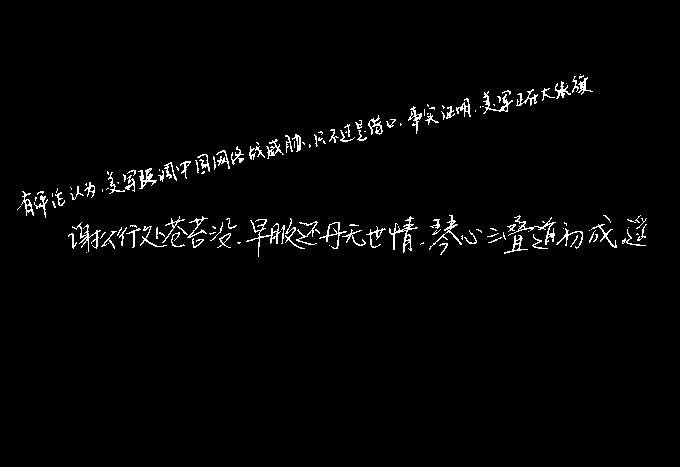 有评论认为,美军强调中国网络战威胁,只不过是借口,事实证明,美军正在大张旗
谢公行处苍苔没,早服还丹无世情,琴心三叠道初成,遥